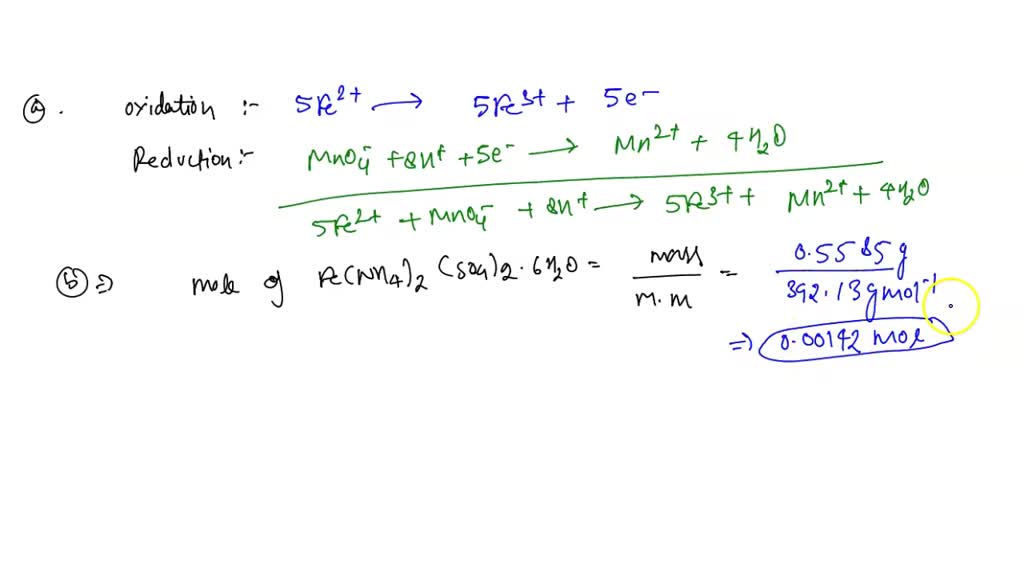 ⓐ. oxidation :- 5Fe²⁺ → 5Fe³⁺ + 5e⁻
Reduction:- MnO₄⁻ + 8H⁺ + 5e⁻ → Mn²⁺ + 4H₂O
5Fe²⁺ + MnO₄⁻ + 8H⁺ → 5Fe³⁺ + Mn²⁺ + 4H₂O
ⓑ ⇒ mole of Fe(NH₄)₂(SO₄)₂·6H₂O = mass / M.M = 0.5585g / 392.13gmol⁻¹
⇒ 0.00142 mol